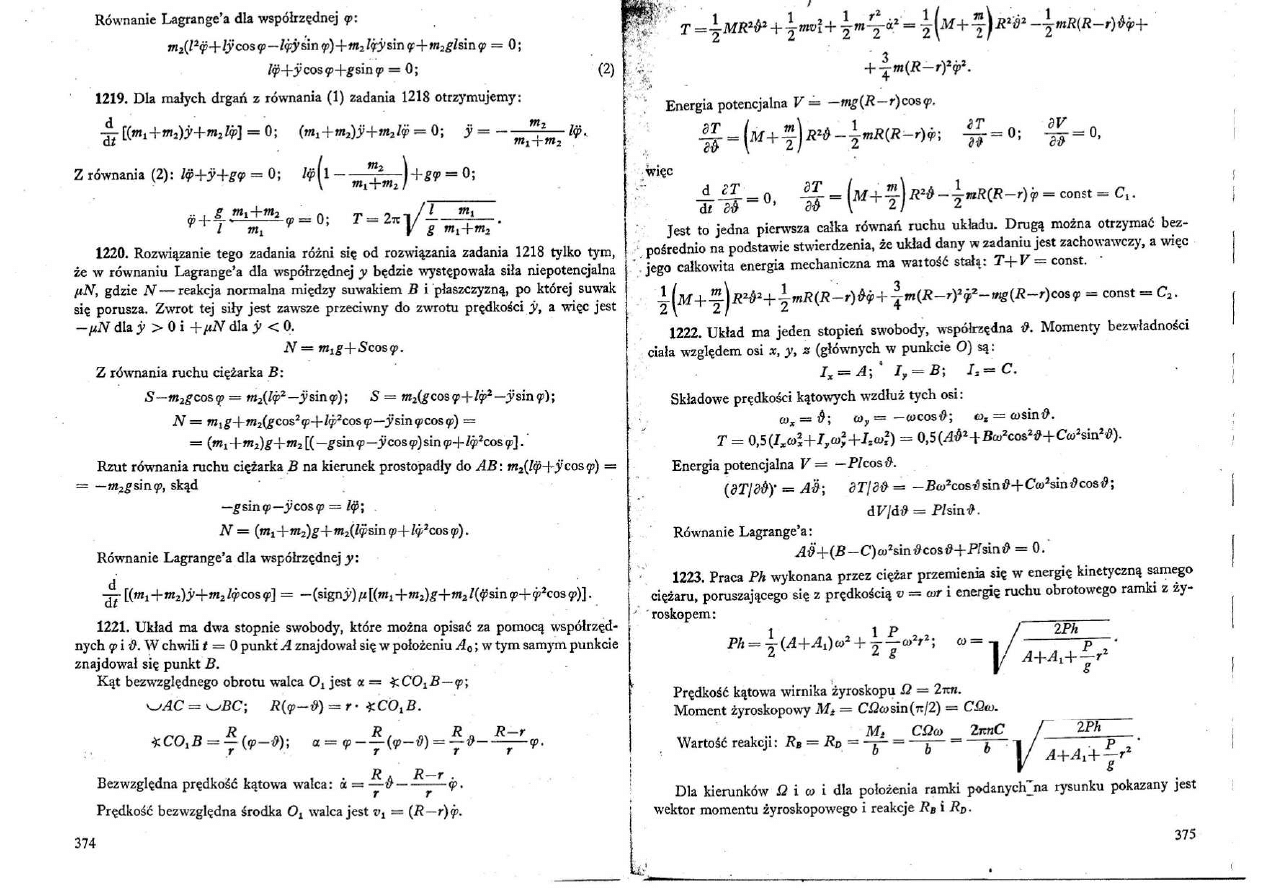 Równanie Lagrange'a dla współrzędnej φ:
m₂(l²φ̈+lÿcosφ−lφ̇ẏsinφ)+m₂lφ̇ẏsinφ+m₂glsinφ = 0;
lφ̈+ÿcosφ+gsinφ = 0; (2)
1219. Dla małych drgań z równania (1) zadania 1218 otrzymujemy:
d/dt [(m₁+m₂)ẏ+m₂lφ̇] = 0; (m₁+m₂)ÿ+m₂lφ̈ = 0; ÿ = − m₂/(m₁+m₂) lφ̈.
Z równania (2): lφ̈+ÿ+gφ = 0; lφ̈(1 − m₂/(m₁+m₂))+gφ = 0;
φ̈ + g/l (m₁+m₂)/m₁ φ = 0; T = 2π√(l/g m₁/(m₁+m₂)).
1220. Rozwiązanie tego zadania różni się od rozwiązania zadania 1218 tylko tym,
że w równaniu Lagrange'a dla współrzędnej y będzie występowała siła niepotencjalna
μN, gdzie N — reakcja normalna między suwakiem B i płaszczyzną, po której suwak
się porusza. Zwrot tej siły jest zawsze przeciwny do zwrotu prędkości ẏ, a więc jest
−μN dla ẏ > 0 i +μN dla ẏ < 0.
N = m₁g+Scosφ.
Z równania ruchu ciężarka B:
S−m₂gcosφ = m₂(lφ̇²−ÿsinφ); S = m₂(gcosφ+lφ̇²−ÿsinφ);
N = m₁g+m₂(gcos²φ+lφ̇²cosφ−ÿsinφcosφ) =
= (m₁+m₂)g+m₂[(−gsinφ−ÿcosφ)sinφ+lφ̇²cosφ].
Rzut równania ruchu ciężarka B na kierunek prostopadły do AB: m₂(lφ̈+ÿcosφ) =
= −m₂gsinφ, skąd
−gsinφ−ÿcosφ = lφ̈;
N = (m₁+m₂)g+m₂(lφ̈sinφ+lφ̇²cosφ).
Równanie Lagrange'a dla współrzędnej y:
d/dt [(m₁+m₂)ẏ+m₂lφ̇cosφ] = −(signẏ)μ[(m₁+m₂)g+m₂l(φ̈sinφ+φ̇²cosφ)].
1221. Układ ma dwa stopnie swobody, które można opisać za pomocą współrzęd-
nych φ i ϑ. W chwili t = 0 punkt A znajdował się w położeniu A₀; w tym samym punkcie
znajdował się punkt B.
Kąt bezwzględnego obrotu walca O₁ jest α = ∢CO₁B−φ;
◡AC = ◡BC; R(φ−ϑ) = r·∢CO₁B.
∢CO₁B = R/r (φ−ϑ); α = φ − R/r (φ−ϑ) = R/r ϑ − (R−r)/r φ.
Bezwzględna prędkość kątowa walca: α̇ = R/r ϑ̇ − (R−r)/r φ̇.
Prędkość bezwzględna środka O₁ walca jest v₁ = (R−r)φ̇.
374
T = 1/2 MR²ϑ̇² + 1/2 mv₁² + 1/2 m r²/2 α̇² = 1/2 (M + m/2) R²ϑ̇² − 1/2 mR(R−r)ϑ̇φ̇+
+ 3/4 m(R−r)²φ̇².
Energia potencjalna V = −mg(R−r)cosφ.
∂T/∂ϑ̇ = (M + m/2) R²ϑ̇ − 1/2 mR(R−r)φ̇; ∂T/∂ϑ = 0; ∂V/∂ϑ = 0,
więc
d/dt ∂T/∂ϑ̇ = 0, ∂T/∂ϑ̇ = (M + m/2) R²ϑ̇ − 1/2 mR(R−r)φ̇ = const = C₁.
Jest to jedna pierwsza całka równań ruchu układu. Drugą można otrzymać bez-
pośrednio na podstawie stwierdzenia, że układ dany w zadaniu jest zachowawczy, a więc
jego całkowita energia mechaniczna ma wartość stałą: T+V = const.
1/2 (M + m/2) R²ϑ̇² + 1/2 mR(R−r)ϑ̇φ̇ + 3/4 m(R−r)²φ̇²−mg(R−r)cosφ = const = C₂.
1222. Układ ma jeden stopień swobody, współrzędna ϑ. Momenty bezwładności
ciała względem osi x, y, z (głównych w punkcie O) są:
Iₓ = A; I_y = B; I_z = C.
Składowe prędkości kątowych wzdłuż tych osi:
ωₓ = ϑ̇; ω_y = −ωcosϑ; ω_z = ωsinϑ.
T = 0,5(Iₓωₓ²+I_yω_y²+I_zω_z²) = 0,5(Aϑ̇²+Bω²cos²ϑ+Cω²sin²ϑ).
Energia potencjalna V = −Plcosϑ.
(∂T/∂ϑ̇)˙ = Aϑ̈; ∂T/∂ϑ = −Bω²cosϑsinϑ+Cω²sinϑcosϑ;
dV/dϑ = Plsinϑ.
Równanie Lagrange'a:
Aϑ̈+(B−C)ω²sinϑcosϑ+Plsinϑ = 0.
1223. Praca Ph wykonana przez ciężar przemienia się w energię kinetyczną samego
ciężaru, poruszającego się z prędkością v = ωr i energię ruchu obrotowego ramki z ży-
roskopem:
Ph = 1/2 (A+A₁)ω² + 1/2 P/g ω²r²; ω = √(2Ph/(A+A₁+ P/g r²)).
Prędkość kątowa wirnika żyroskopu Ω = 2πn.
Moment żyroskopowy M_ż = CΩωsin(π/2) = CΩω.
Wartość reakcji: R_B = R_D = M_ż/b = CΩω/b = 2πnC/b √(2Ph/(A+A₁+ P/g r²)).
Dla kierunków Ω i ω i dla położenia ramki podanych na rysunku pokazany jest
wektor momentu żyroskopowego i reakcje R_B i R_D.
375